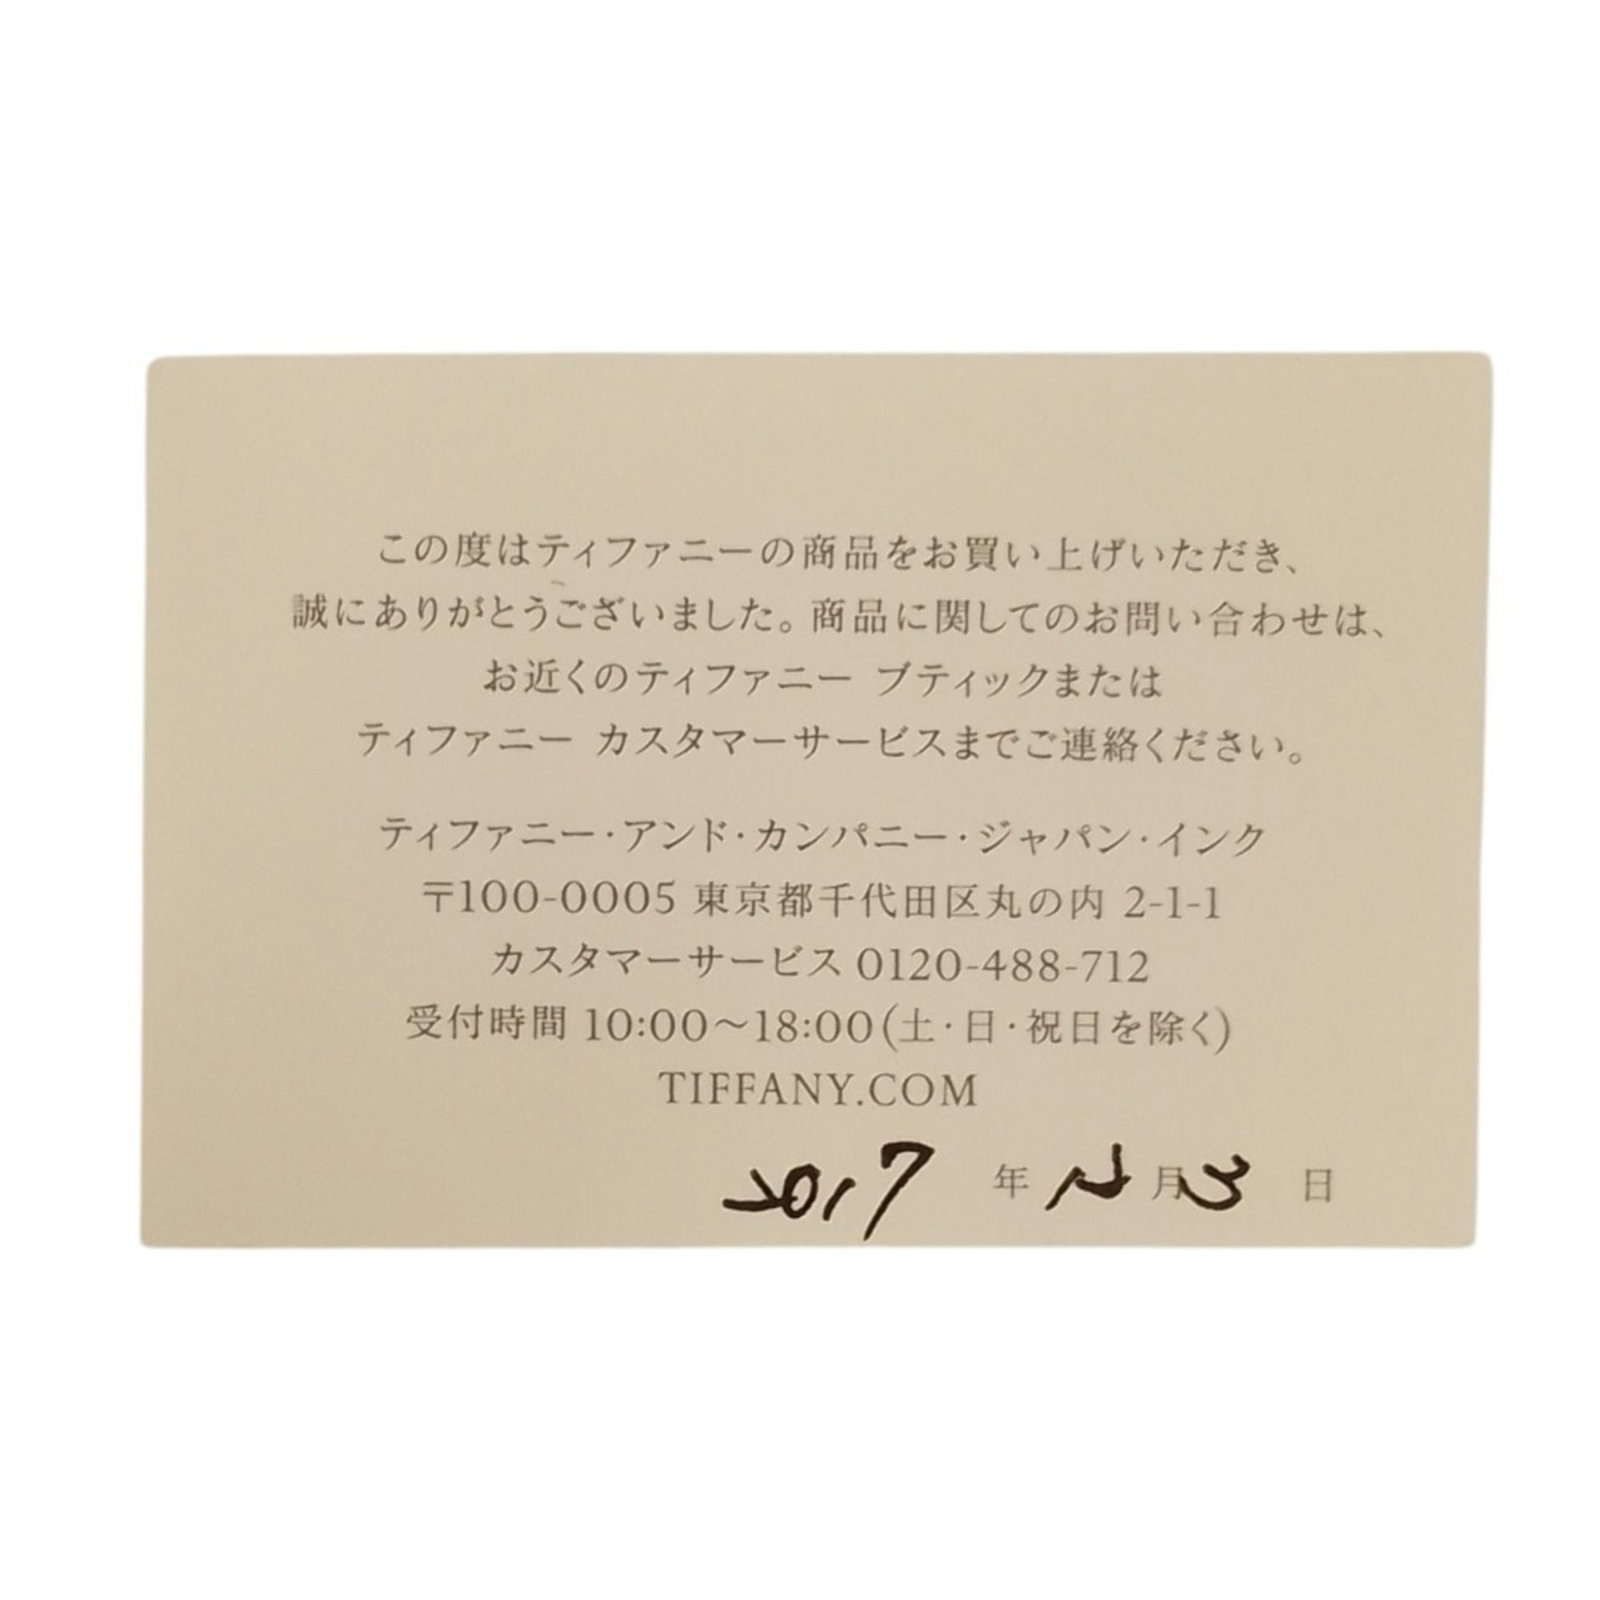 この度はティファニーの商品をお買い上げいただき、
誠にありがとうございました。商品に関してのお問い合わせは、
お近くのティファニー ブティックまたは
ティファニー カスタマーサービスまでご連絡ください。
ティファニー・アンド・カンパニー・ジャパン・インク
〒100-0005 東京都千代田区丸の内 2-1-1
カスタマーサービス 0120-488-712
受付時間 10:00～18:00(土・日・祝日を除く)
TIFFANY.COM
2017 年 12 月 3 日